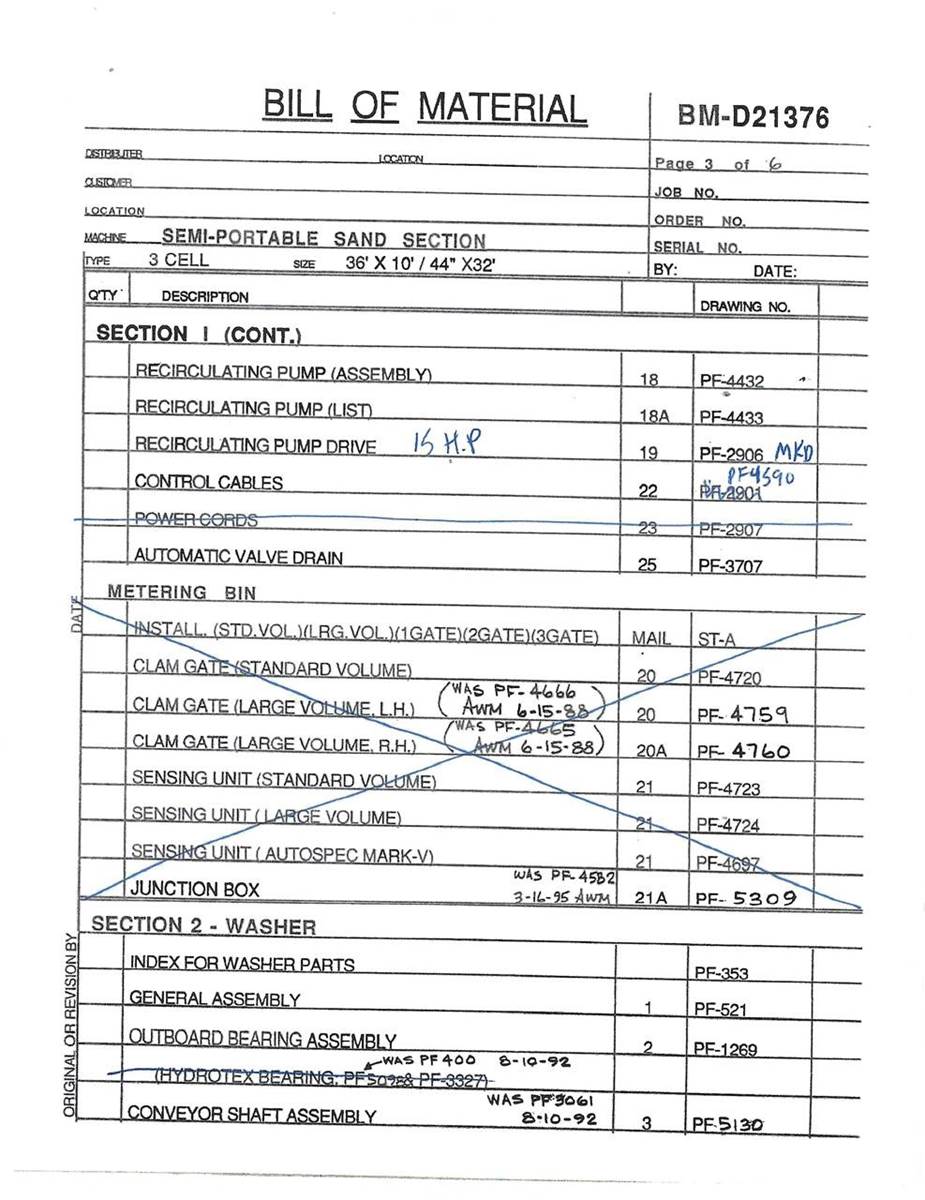 BILL OF MATERIAL BM-D21376
DISTRIBUTER LOCATION Page 3 of 6
CUSTOMER JOB NO.
LOCATION ORDER NO.
MACHINE SEMI-PORTABLE SAND SECTION SERIAL NO.
TYPE 3 CELL SIZE 36' X 10' / 44" X32' BY: DATE:
Q'TY DESCRIPTION DRAWING NO.
SECTION I (CONT.)
RECIRCULATING PUMP (ASSEMBLY) 18 PF-4432
RECIRCULATING PUMP (LIST) 18A PF-4433
RECIRCULATING PUMP DRIVE 15 H.P 19 PF-2906 MKD
PF4590
CONTROL CABLES 22 PF-2901
POWER CORDS 23 PF-2907
AUTOMATIC VALVE DRAIN 25 PF-3707
METERING BIN
DATE
INSTALL. (STD.VOL.)(LRG.VOL.)(1GATE)(2GATE)(3GATE) MAIL ST-A
CLAM GATE (STANDARD VOLUME) 20 PF-4720
(WAS PF-4666
CLAM GATE (LARGE VOLUME, L.H.) AWM 6-15-88) 20 PF-4759
(WAS PF-4665
CLAM GATE (LARGE VOLUME, R.H.) AWM 6-15-88) 20A PF-4760
SENSING UNIT (STANDARD VOLUME) 21 PF-4723
SENSING UNIT ( LARGE VOLUME) 21 PF-4724
SENSING UNIT ( AUTOSPEC MARK-V) 21 PF-4697
WAS PF-4582
JUNCTION BOX 3-16-95 AWM 21A PF-5309
SECTION 2 - WASHER
ORIGINAL OR REVISION BY
INDEX FOR WASHER PARTS PF-353
GENERAL ASSEMBLY 1 PF-521
OUTBOARD BEARING ASSEMBLY 2 PF-1269
WAS PF400 8-10-92
(HYDROTEX BEARING: PF5098& PF-3327)
WAS PF3061
CONVEYOR SHAFT ASSEMBLY 8-10-92 3 PF-5130